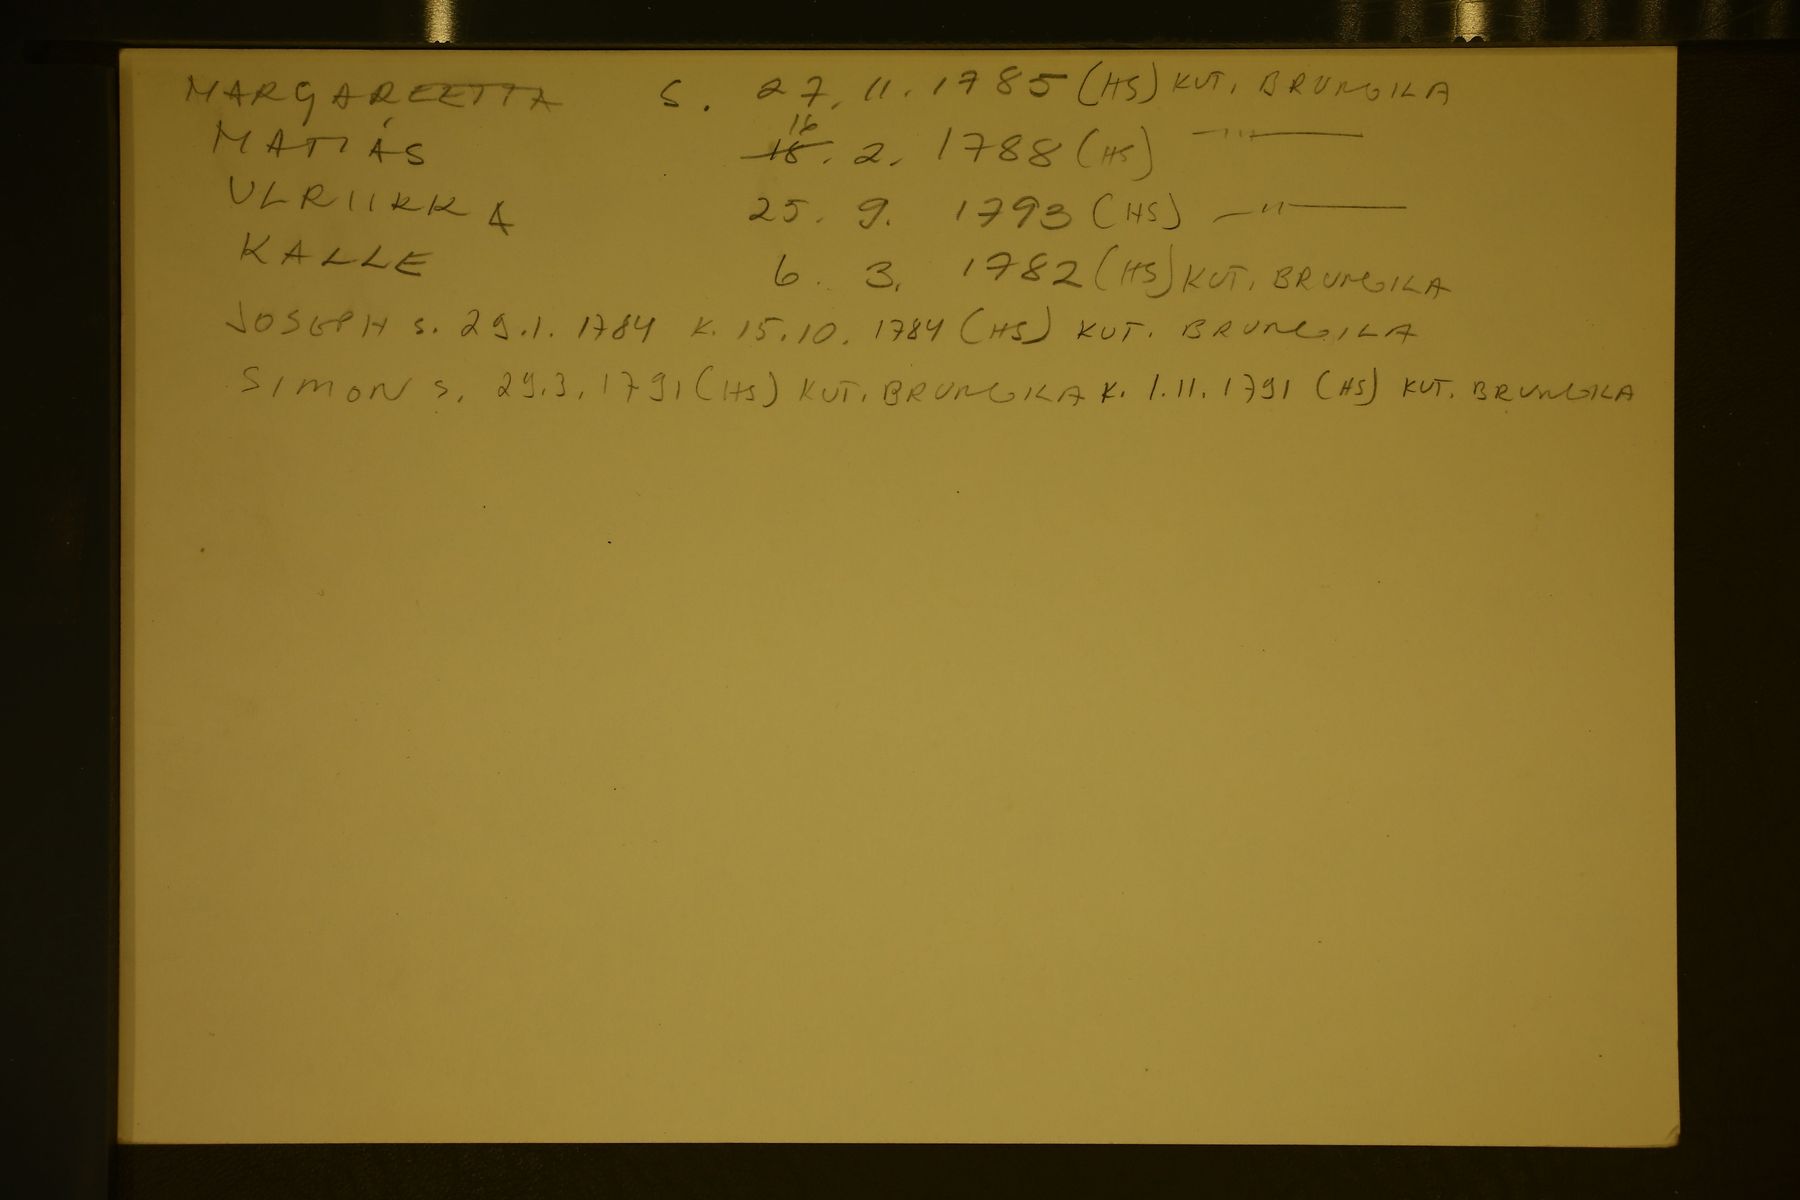 MARGAREETTA S. 27. 11. 1785 (HS) KUT. BRUNGILA
MATIAS 16 18. 2. 1788 (HS) —"—
ULRIIKKA 25. 9. 1793 (HS) —"—
KALLE 6. 3. 1782 (HS) KUT. BRUNGILA
JOSEPH S. 29.1. 1784 K. 15.10. 1784 (HS) KUT. BRUNGILA
SIMON S. 29.3. 1791 (HS) KUT. BRUNGILA K. 1.11. 1791 (HS) KUT. BRUNGILA